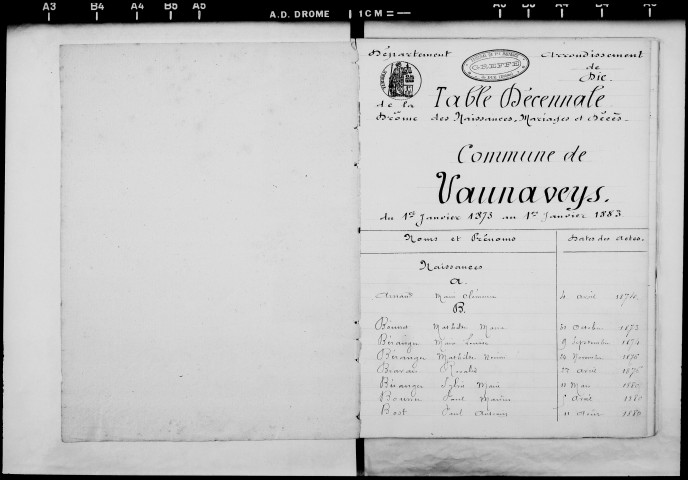 A3 B4 A4 B5 A5
A.D. DROME 1CM
Département
Arrondissement
de
Die.
GREFFE
de la
Drôme
Table Décennale
des Naissances, Mariages et Décès
Commune de
Vaunaveys.
du 1er Janvier 1873 au 1er Janvier 1883
Noms et Prénoms Dates des Actes.
Naissances
A.
Arnaud Marie 4 1874
B.
Mathilde Marie 31 Octobre 1873
Béranger Marie 9 Septembre 1874
Béranger Mathilde 24 Novembre 1876
22 Avril 1876
Béranger Sylvie Marie 11 Mars 1880
Paul Marius Avril 1880
Bost Paul 11 1880